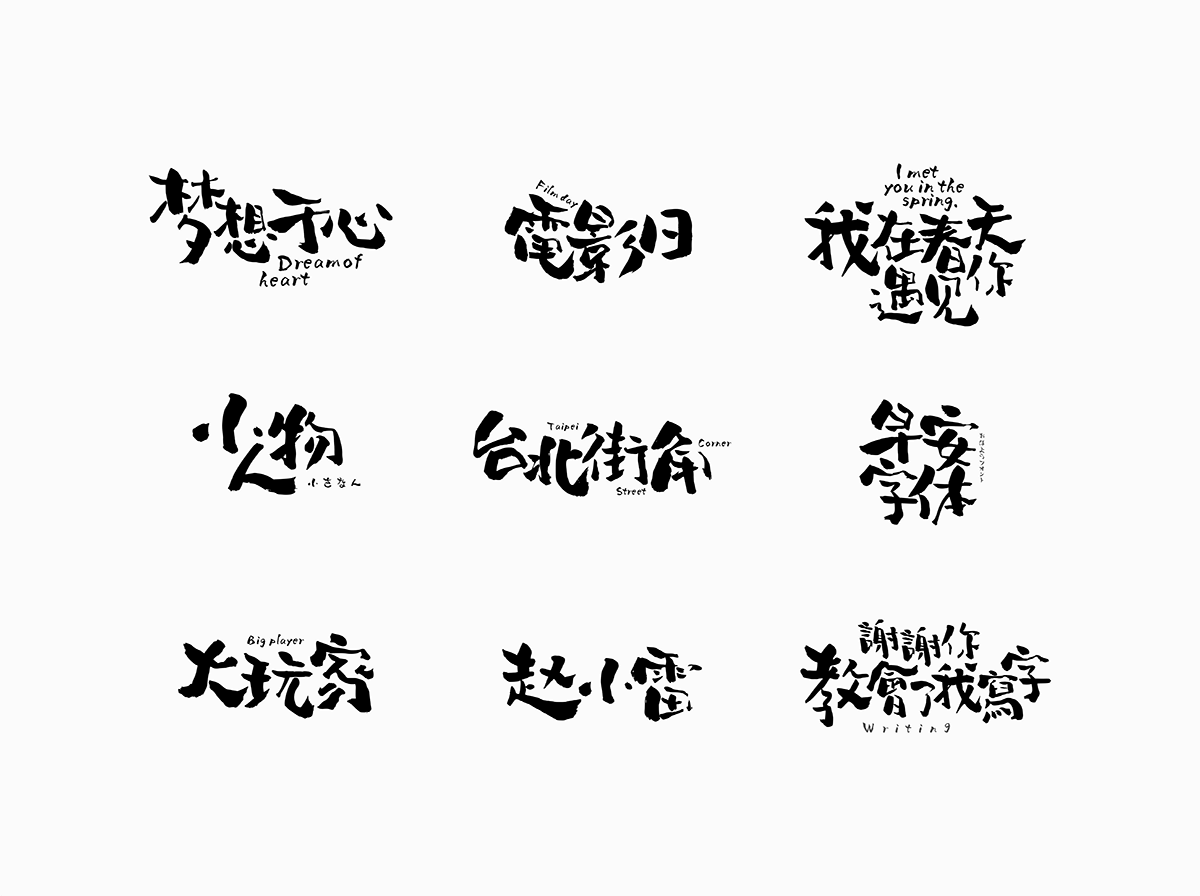 梦想于心
Dream of
heart
Film day
電影归
I met
you in the
spring.
我在春天
遇见你
小人物
小さなん
Taipei
台北街角
Corner
Street
早安
字体
おはようフォント
Big player
大玩家
赵小雷
謝謝你
教會了我寫字
Writing